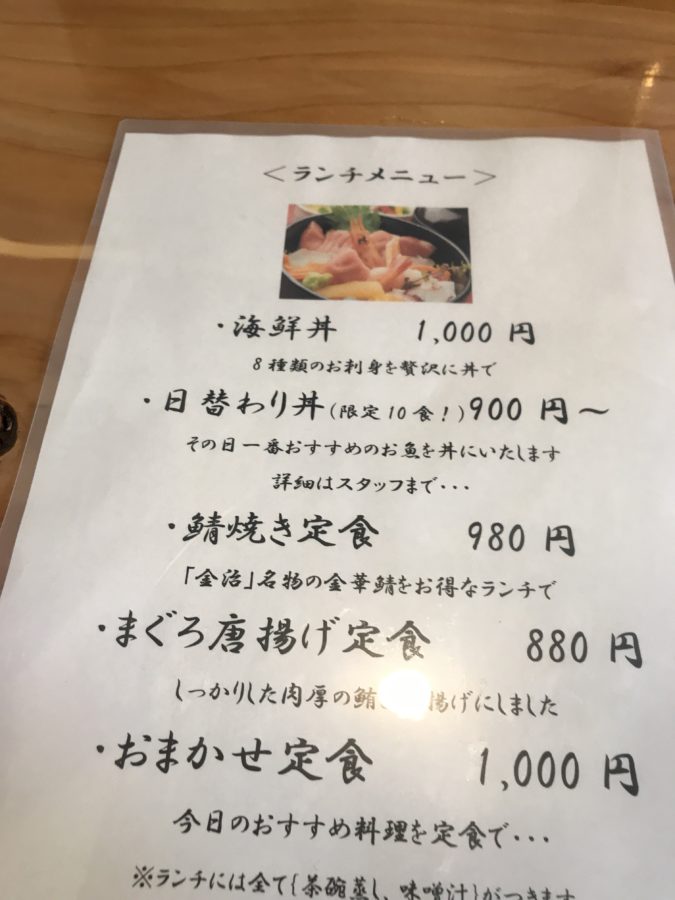 ＜ランチメニュー＞
・海鮮丼 1,000 円
8種類のお刺身を贅沢に丼で
・日替わり丼(限定10食！)900 円～
その日一番おすすめのお魚を丼にいたします
詳細はスタッフまで･･･
・鯖焼き定食 980 円
「金治」名物の金華鯖をお得なランチで
・まぐろ唐揚げ定食 880 円
しっかりした肉厚の鮪 揚げにしました
・おまかせ定食 1,000 円
今日のおすすめ料理を定食で･･･
※ランチには全て{茶碗蒸し、味噌汁}がつきます